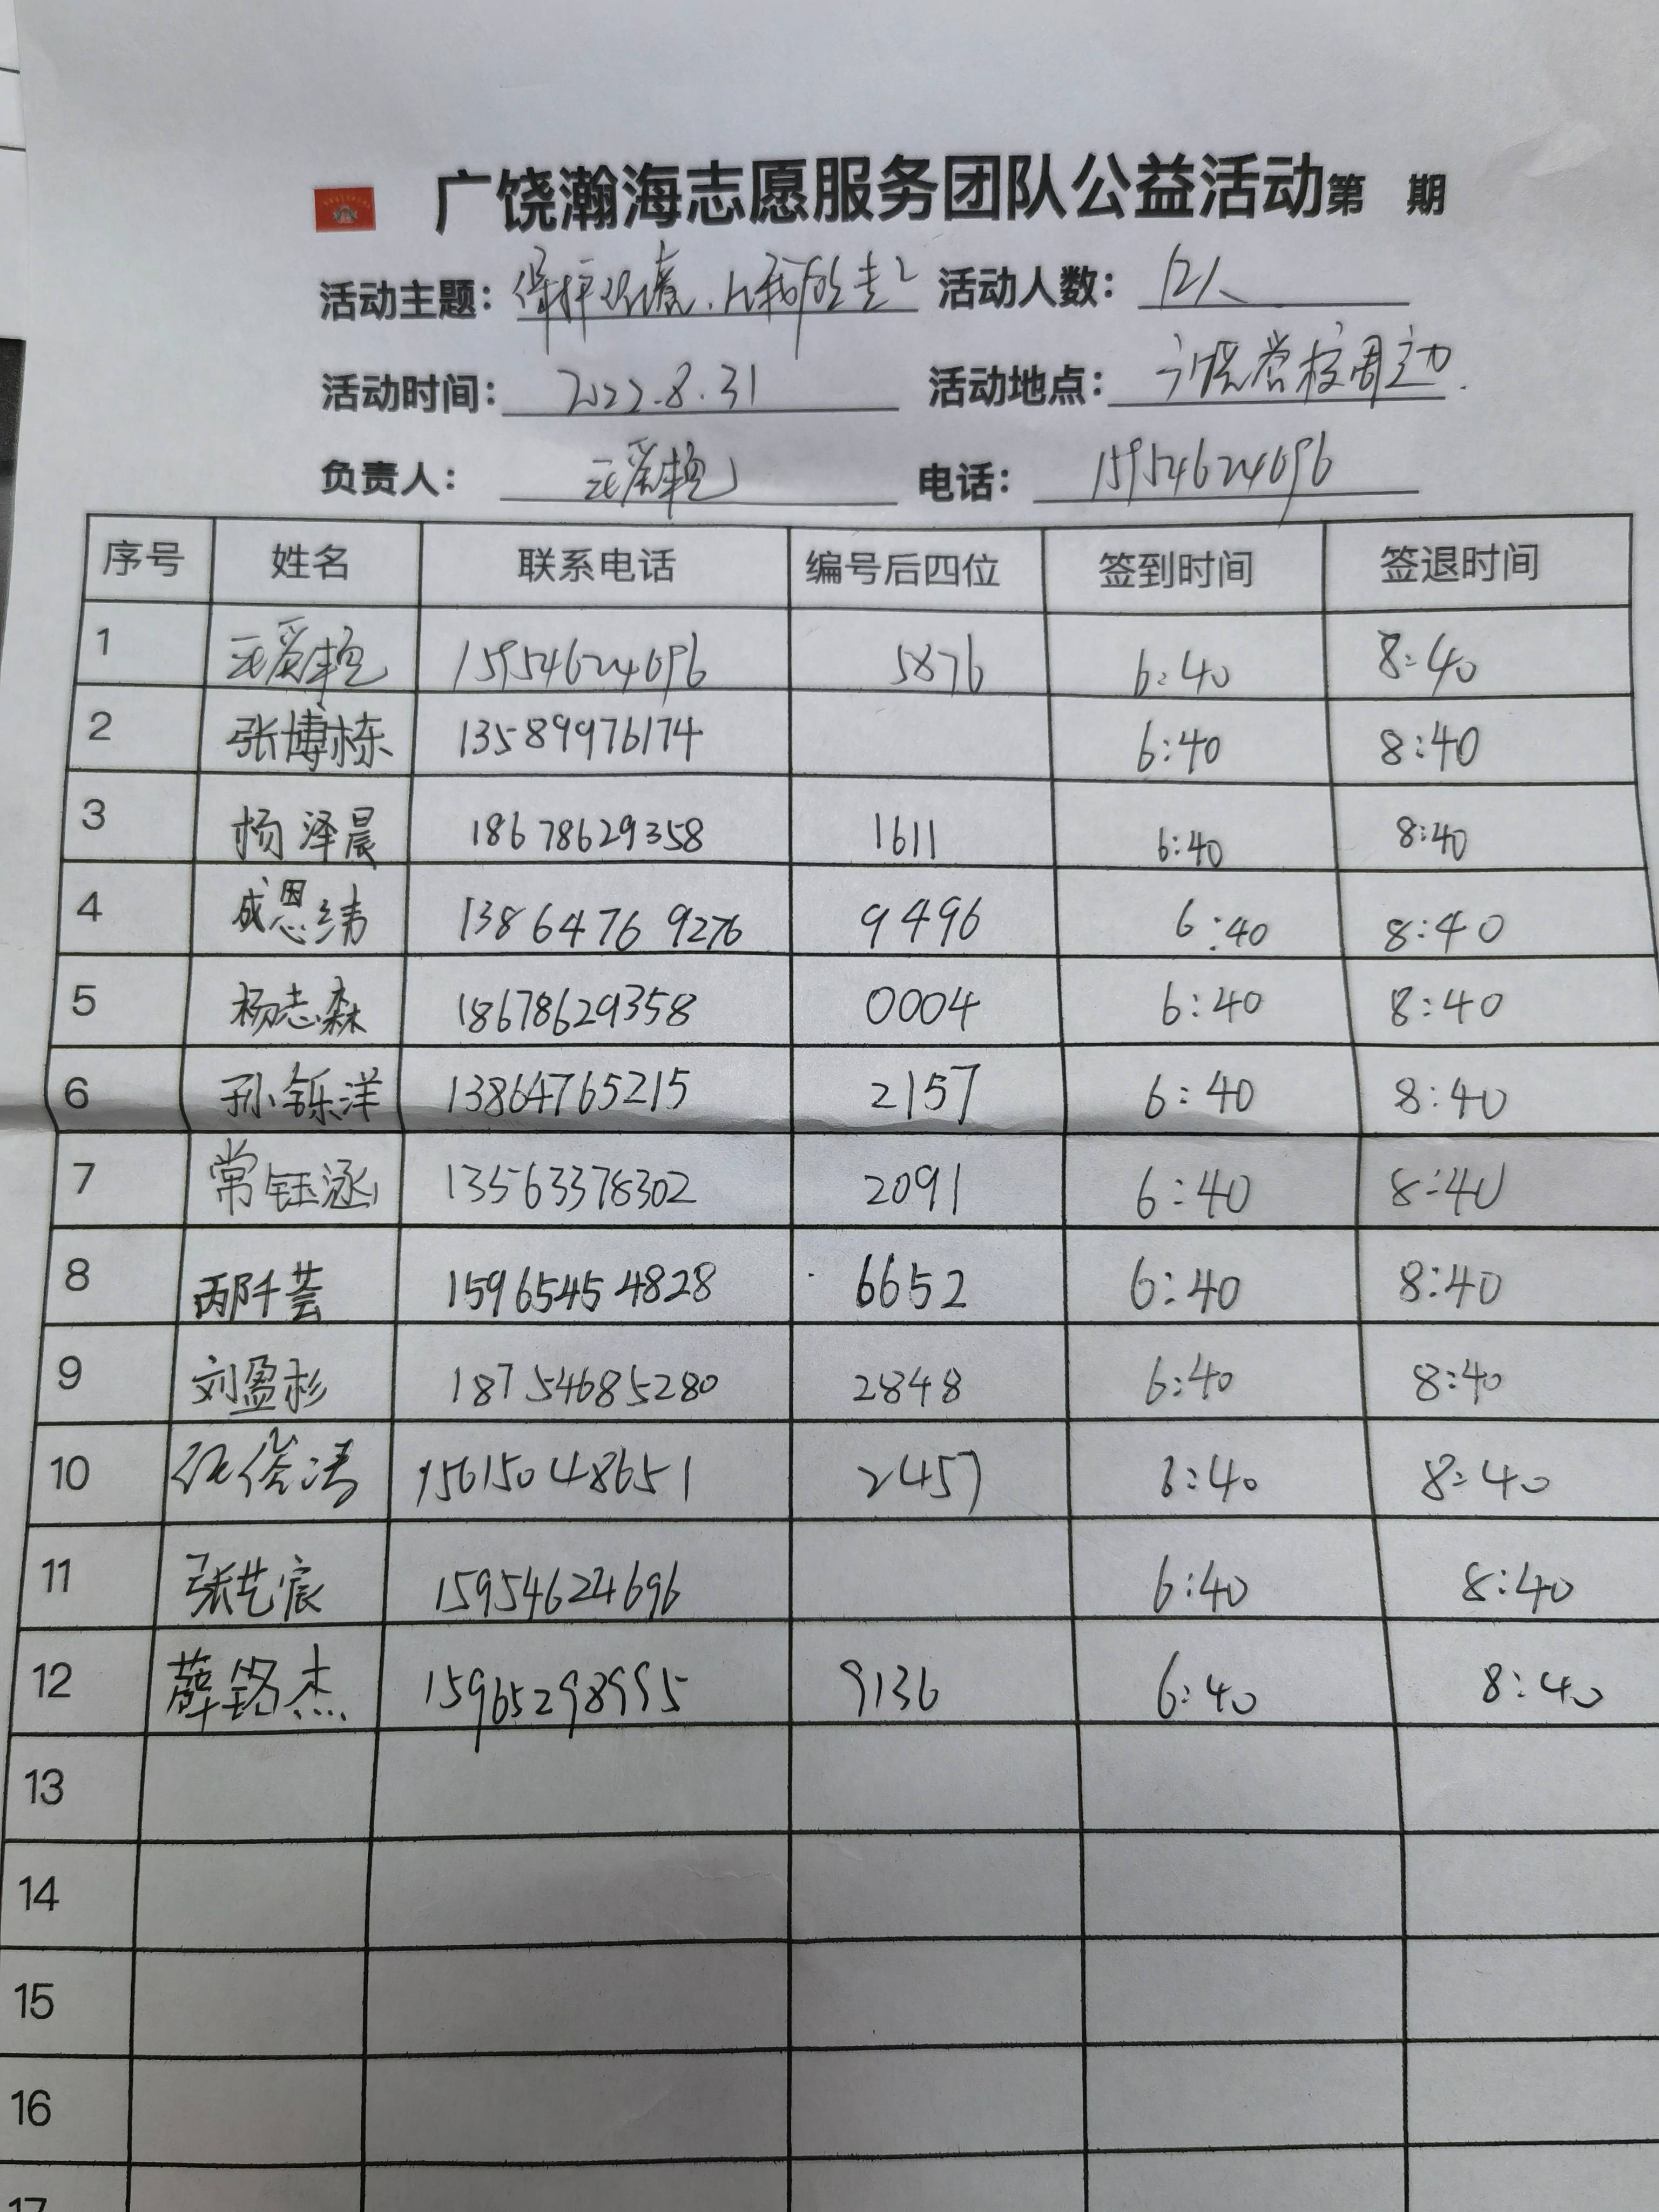 广饶瀚海志愿服务团队公益活动第 期
活动主题: 保护环境，从我做起 活动人数: 12人
活动时间: 2022.8.31 活动地点: 广饶党校周边.
负责人: 电话: 15954624696
序号 姓名 联系电话 编号后四位 签到时间 签退时间
1 15954624696 5876 6:40 8:40
2 张博栋 13589976174 6:40 8:40
3 杨泽晨 18678629358 1611 6:40 8:40
4 成恩纬 13864769276 9496 6:40 8:40
5 杨志森 18678629358 0004 6:40 8:40
6 孙铄洋 13864765215 2157 6:40 8:40
7 常钰涵 13563378302 2091 6:40 8:40
8 邴阡芸 15965454828 6652 6:40 8:40
9 刘盈杉 18754685280 2848 6:40 8:40
10 15615048651 2457 6:40 8:40
11 张艺宸 15954624696 6:40 8:40
12 薛铭杰 15965298995 9136 6:40 8:40
13
14
15
16
17